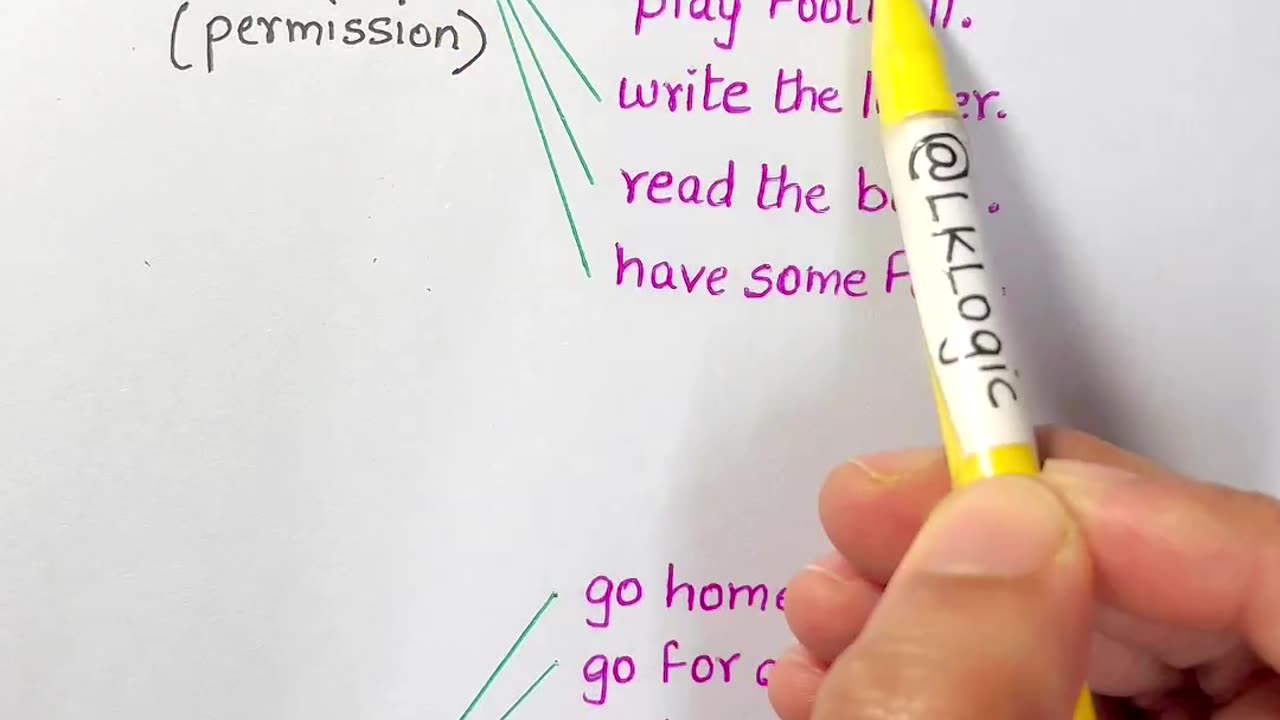 (permission)
play
write the
read the
have some
@LKLogic
go home
go for